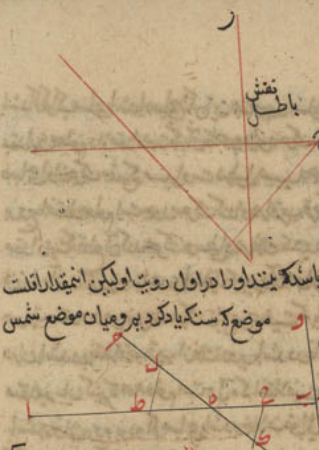 ز
نقش
باطل
باشد که بینند او را در اول رویت او لیکن اینمقدار اقلست
موضع که ستکه یاد کرد یم و میان موضع شمس
و
م
ل
ا ط ه ح ب
ی